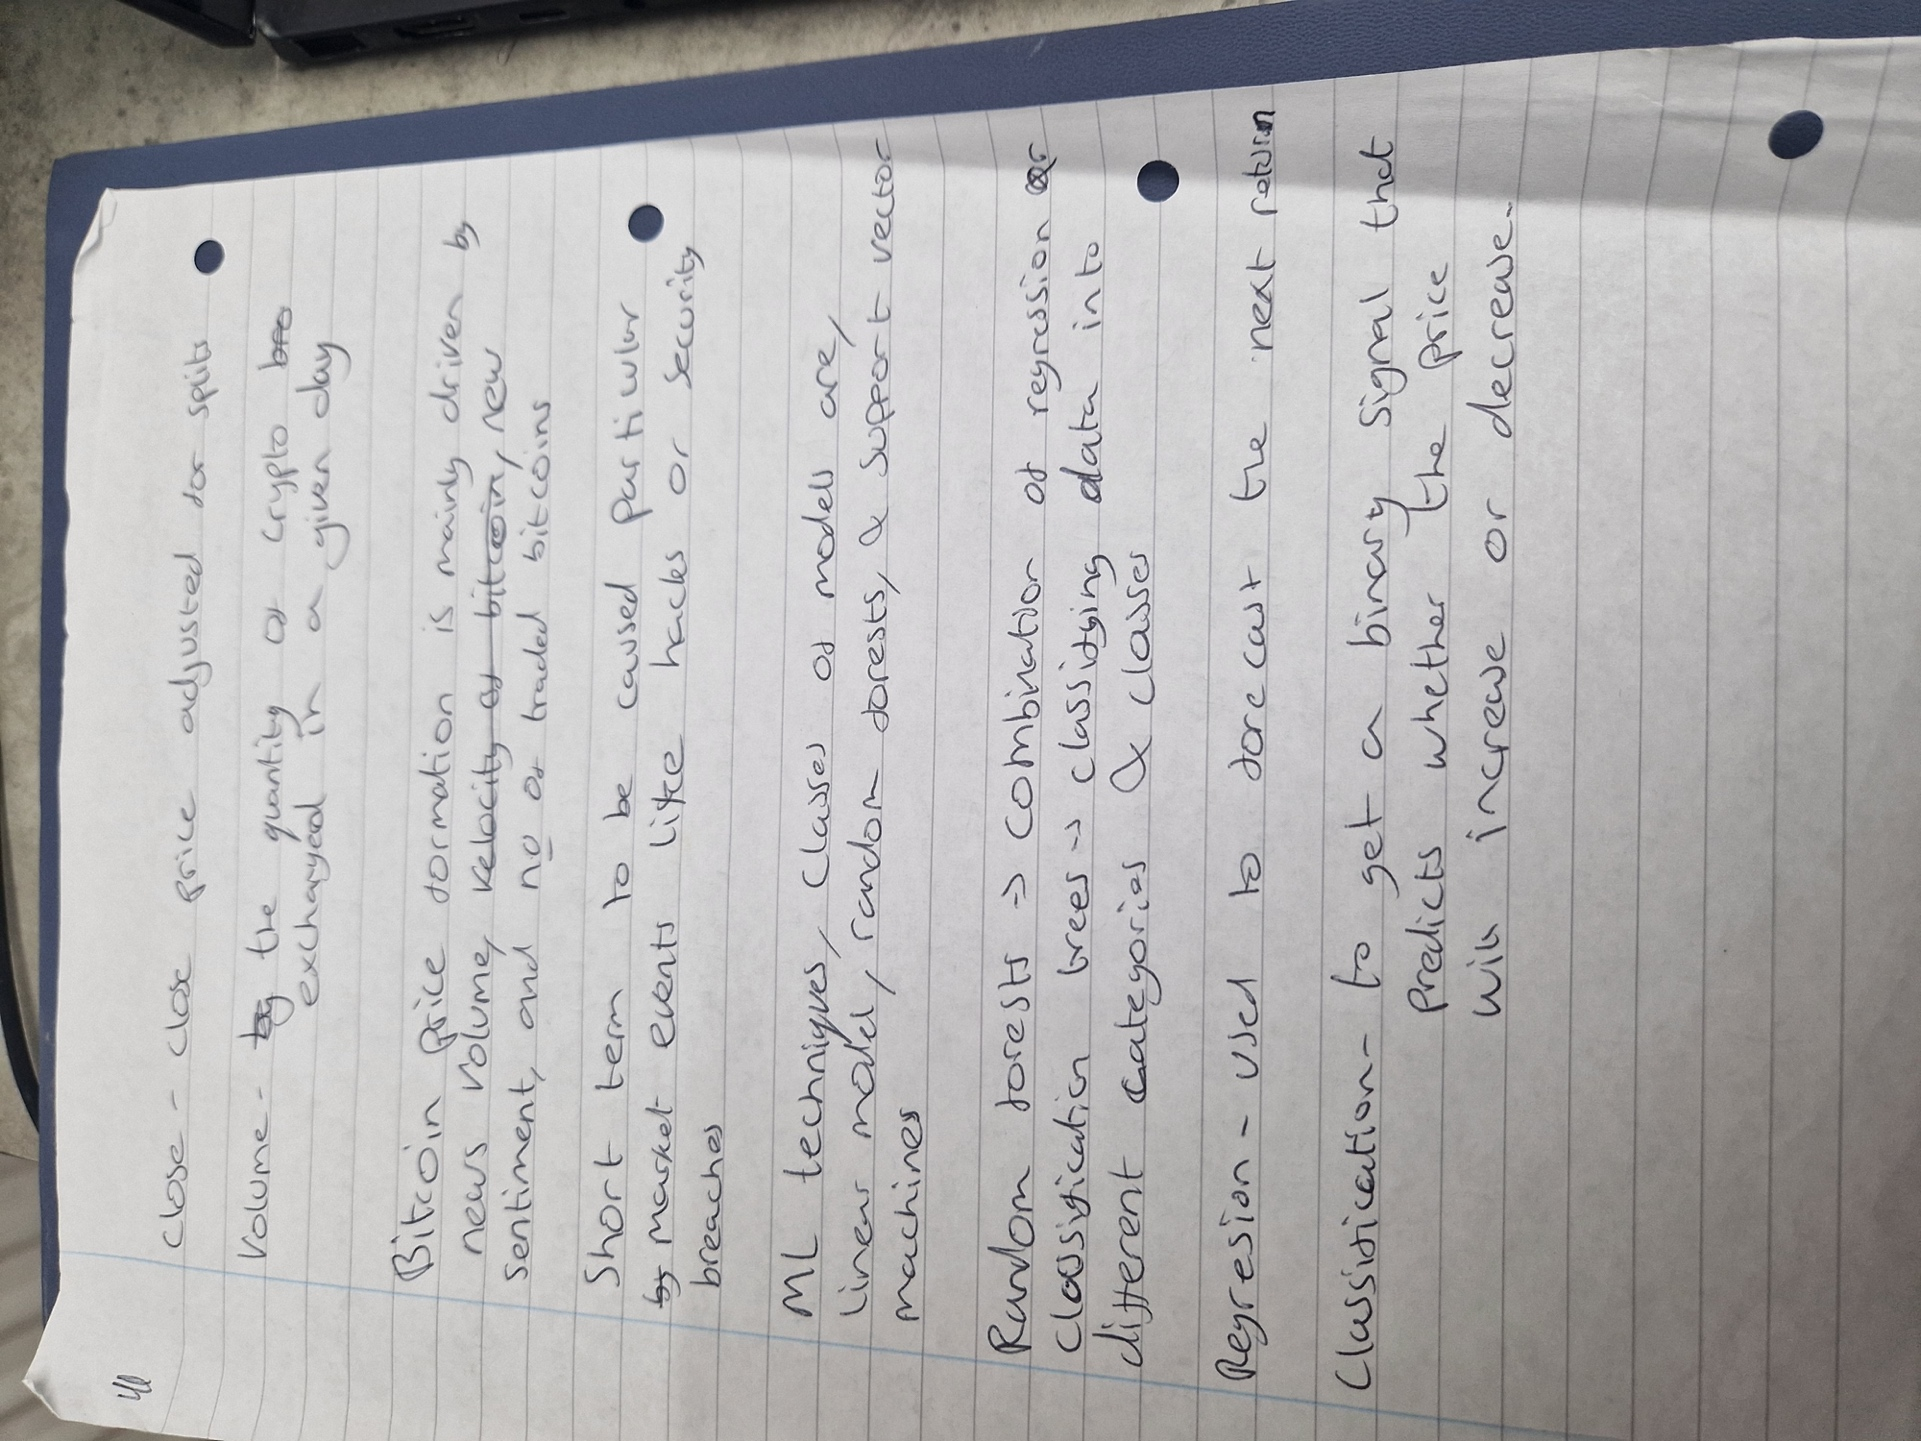 Close - close price adjusted for splits
Volume - by the quantity of crypto
exchanged in a given day
Bitcoin price formation is mainly driven by
news volume, velocity of bitcoin, new
sentiment, and no of traded bitcoins
Short term to be caused particular
by market events like hacks or security
breaches
ML techniques, classes of models are,
linear model, random forests, & support vector
machines
Random forests -> combination of regression or
Classification trees -> classifying data into
different categories & classes
Regresion - used to forecast the next return
Classification - to get a binary signal that
predicts whether the price
will increase or decrease.